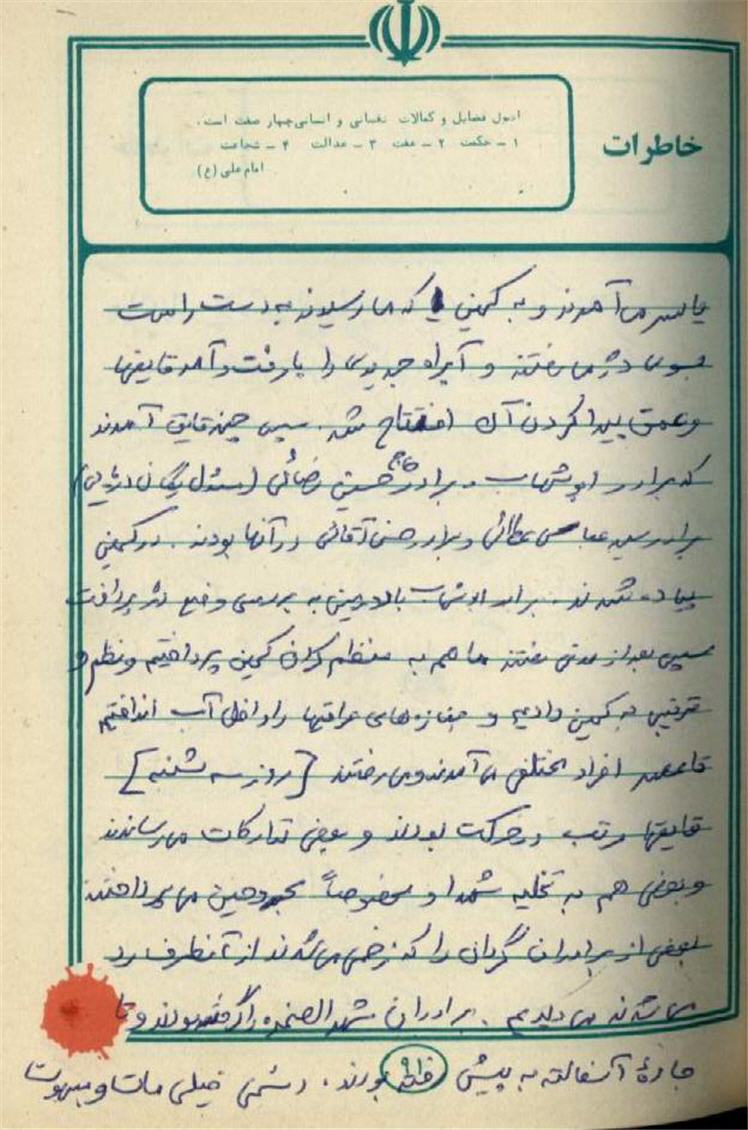 خاطرات
اصول فضایل و کمالات نفسانی و انسانی چهار صفت است.
۱ - حکمت ۲ - عفت ۳ - عدالت ۴ - شجاعت
امام علی (ع)
می‌آمدند و به کمین که می‌رسیدند به دست راست
بسوی دژ می‌رفتند و آبراه جدیدی را با رفت و آمد قایقها
و عمق پیدا کردن آن افتتاح شد. سپس چند قایق آمدند
که برادر ابوشهاب . برادر حاج حسین رضائی (مسئول یگان دریایی)
برادر سید عباس و برادر حسن آقائی در آنها بودند . در کمین
پیاده شدند . برادر ابوشهاب با دوربین به بررسی وضع دژ پرداخت
سپس بعد از مدتی رفتند ما هم به منظم کردن کمین پرداختیم و نظم و
ترتیبی به کمین دادیم و جنازه‌های عراقیها را داخل آب انداختیم
تا عصر افراد مختلفی می‌آمدند و می‌رفتند [روز سه شنبه]
قایقها مرتب در حرکت بودند و بعضی تدارکات می‌رساندند
و بعضی هم به تخلیه شهدا و مخصوصاً مجروحین می‌پرداختند
بعضی از برادران گردان را که زخمی می‌شدند از آنطرف رد
می‌شدند می‌دیدیم . برادران شهر الصخره را گرفته بودند و تا
جادهٔ آسفالته به پیش رفته بودند . دشمن خیلی مات و مبهوت
۹۱